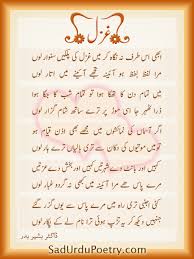 غزل
ابھی اس طرف نہ نگاہ کر میں غزل کی پلکیں سنوار لوں
مرا لفظ لفظ ہو آئینہ تجھے آئینے میں اتار لوں
میں تمام دن کا تھکا ہوا تو تمام شب کا جگا ہوا
ذرا ٹھہر جا اسی موڑ پر تیرے ساتھ شام گزار لوں
اگر آسماں کی نمائشوں میں مجھے بھی اذن قیام ہو
تو میں موتیوں کی دکان سے تری بالیاں ترے ہار لوں
کہیں اور بانٹ دے شہرتیں کہیں اور بخش دے عزتیں
مرے پاس ہے مرا آئینہ میں کبھی نہ گرد و غبار لوں
جنہیں دیکھ کر یہ تڑپ ہوئی ترا نام لے کے پکار لوں
ڈاکٹر بشیر بدر
SadUrduPoetry.com